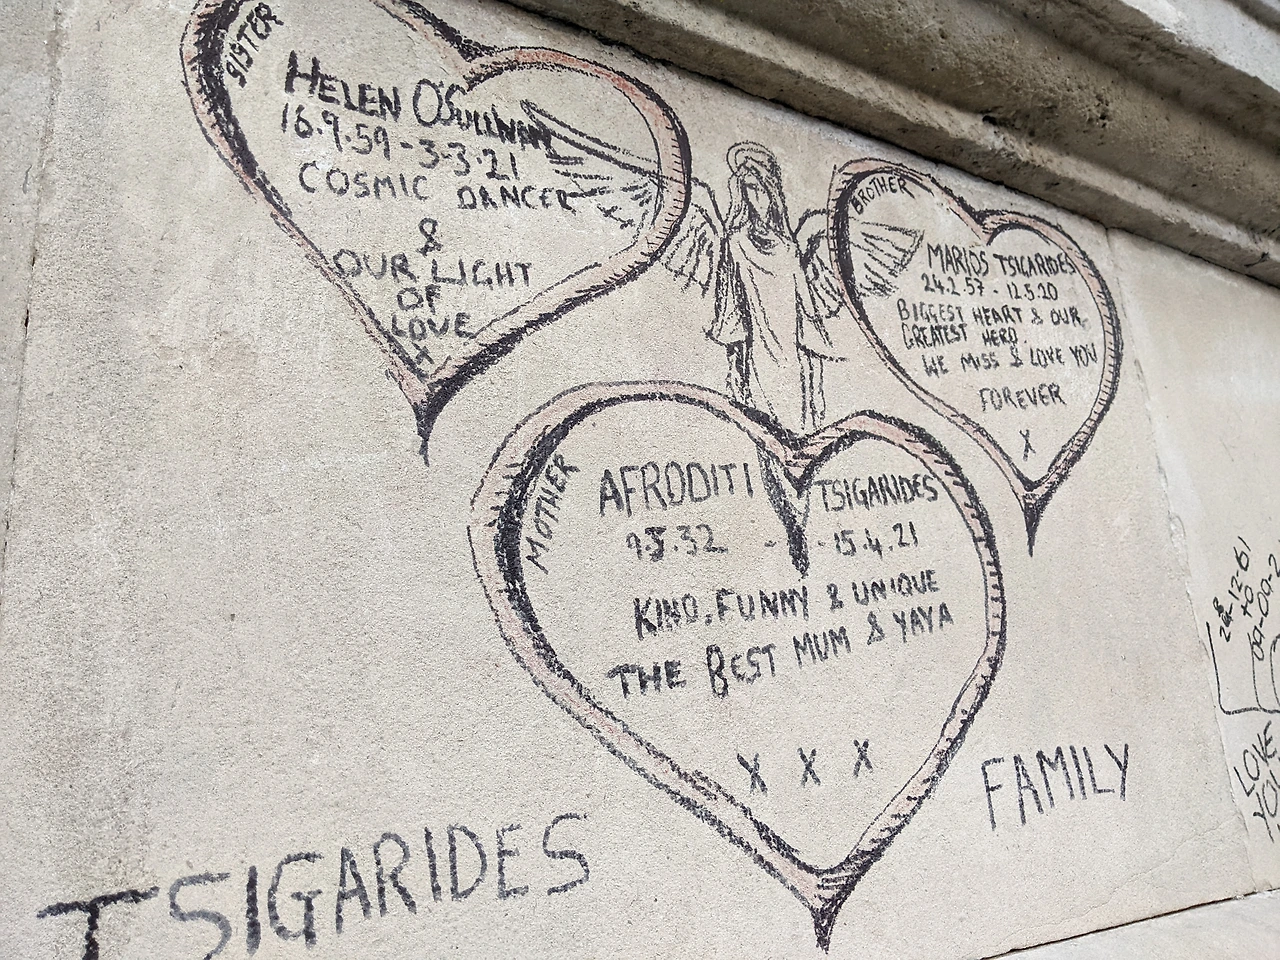 SISTER
HELEN O'SULLIVAN
16.9.59 - 3.3.21
COSMIC DANCER
&
OUR LIGHT
OF
LOVE
X
BROTHER
MARIOS TSIGARIDES
24.2.57 - 12.5.20
BIGGEST HEART & OUR
GREATEST HERO.
WE MISS & LOVE YOU
FOREVER
X
MOTHER
AFRODITI TSIGARIDES
9.5.32 - - 15.4.21
KIND, FUNNY & UNIQUE
THE BEST MUM & YAYA
X X X
TSIGARIDES FAMILY
TO
LOVE
YOU